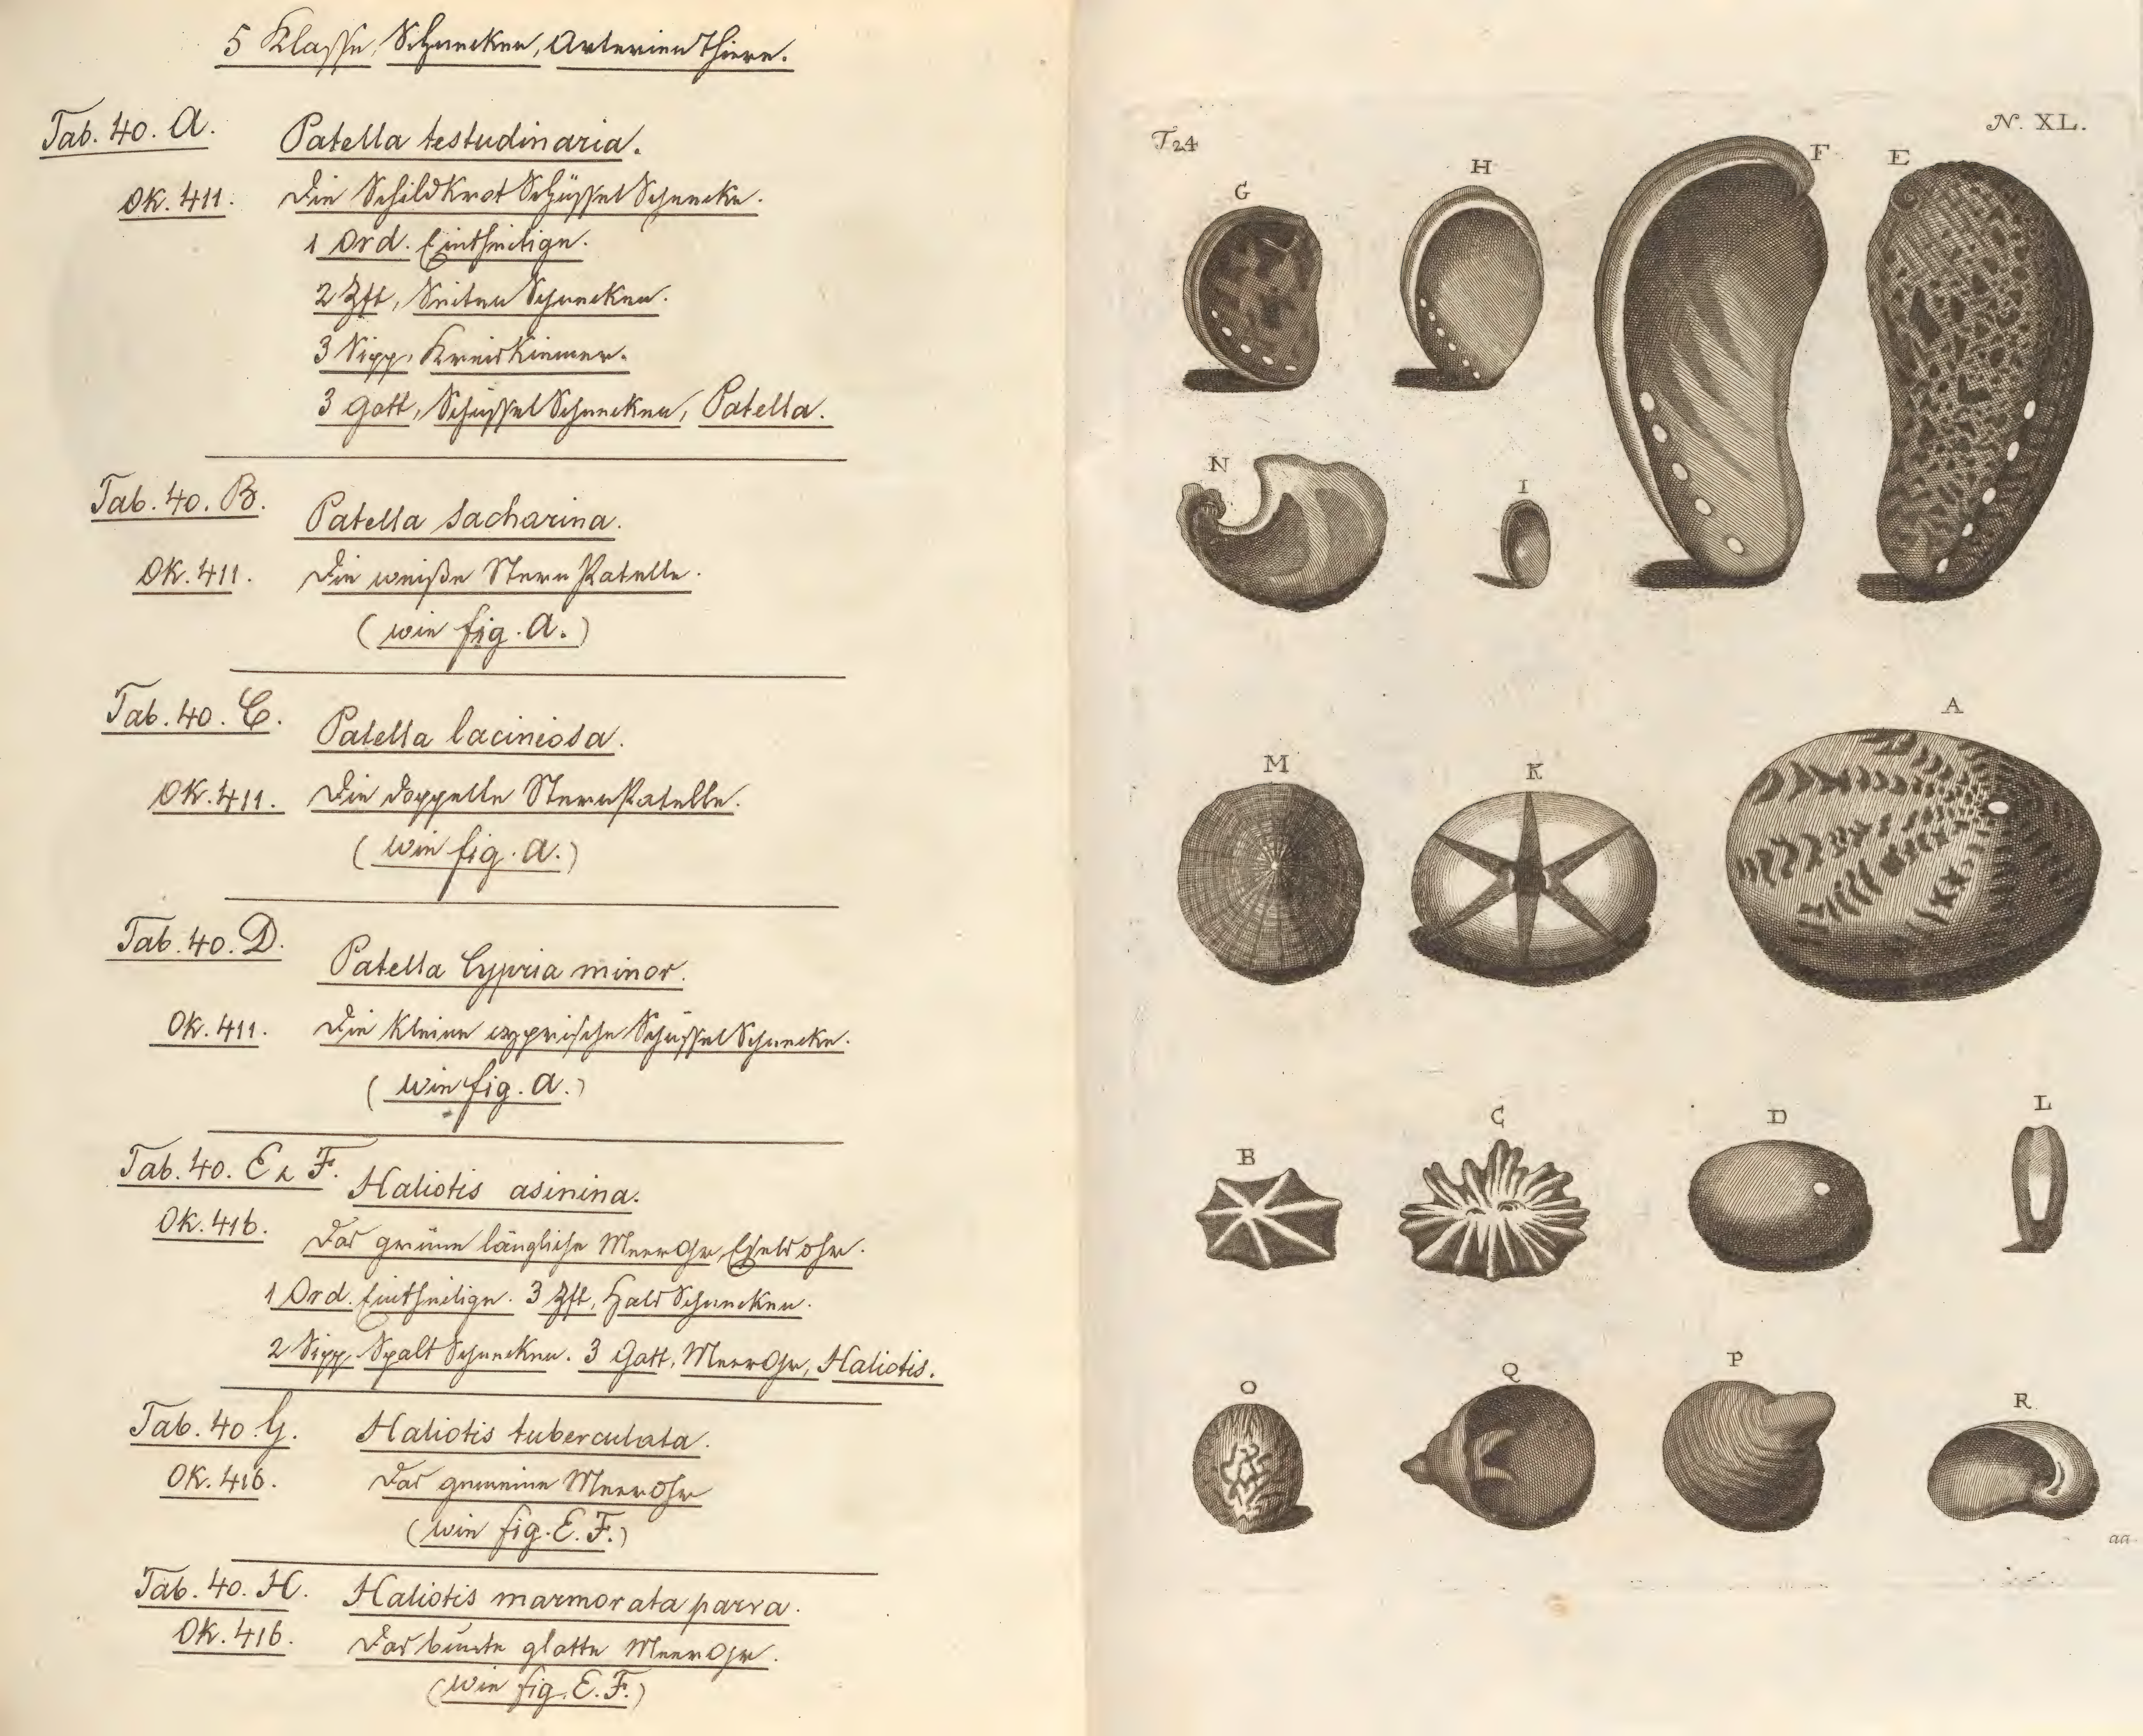 5 Klasse, Schnecken, Arterien Thiere.
Tab. 40. A. Patella testudinaria.
Ok. 411. Die Schildkrot Schüssel Schnecke.
1 Ord. Eintheilige.
2 Zft, Seiten Schnecken.
3 Sipp, Kreiskiemer.
3 Gatt, Schüssel Schnecken, Patella.
Tab. 40. B. Patella sacharina.
Ok. 411. Die weiße Stern Patelle.
(wie fig. A.)
Tab. 40. C. Patella laciniosa.
Ok. 411. Die doppelte Stern Patelle.
(wie fig. A.)
Tab. 40. D. Patella Cypria minor.
Ok. 411. Die kleine cyprische Schüssel Schnecke.
(wie fig. A.)
Tab. 40. E & F. Haliotis asinina.
Ok. 416. Das grüne längliche Meer Ohr, Esels ohr.
1 Ord. Eintheilige. 3 Zft, Hals Schnecken.
2 Sipp, Spalt Schnecken. 3 Gatt, Meer Ohr, Haliotis.
Tab. 40 G. Haliotis tuberculata.
Ok. 416. Das gemeine Meer Ohr
(wie fig. E. F.)
Tab. 40. H. Haliotis marmorata parva.
Ok. 416. Das bunte glatte Meer Ohr.
(wie fig. E. F.)
T24
N. XL.
G H F E
N I
M K A
B C D L
O Q P R
aa